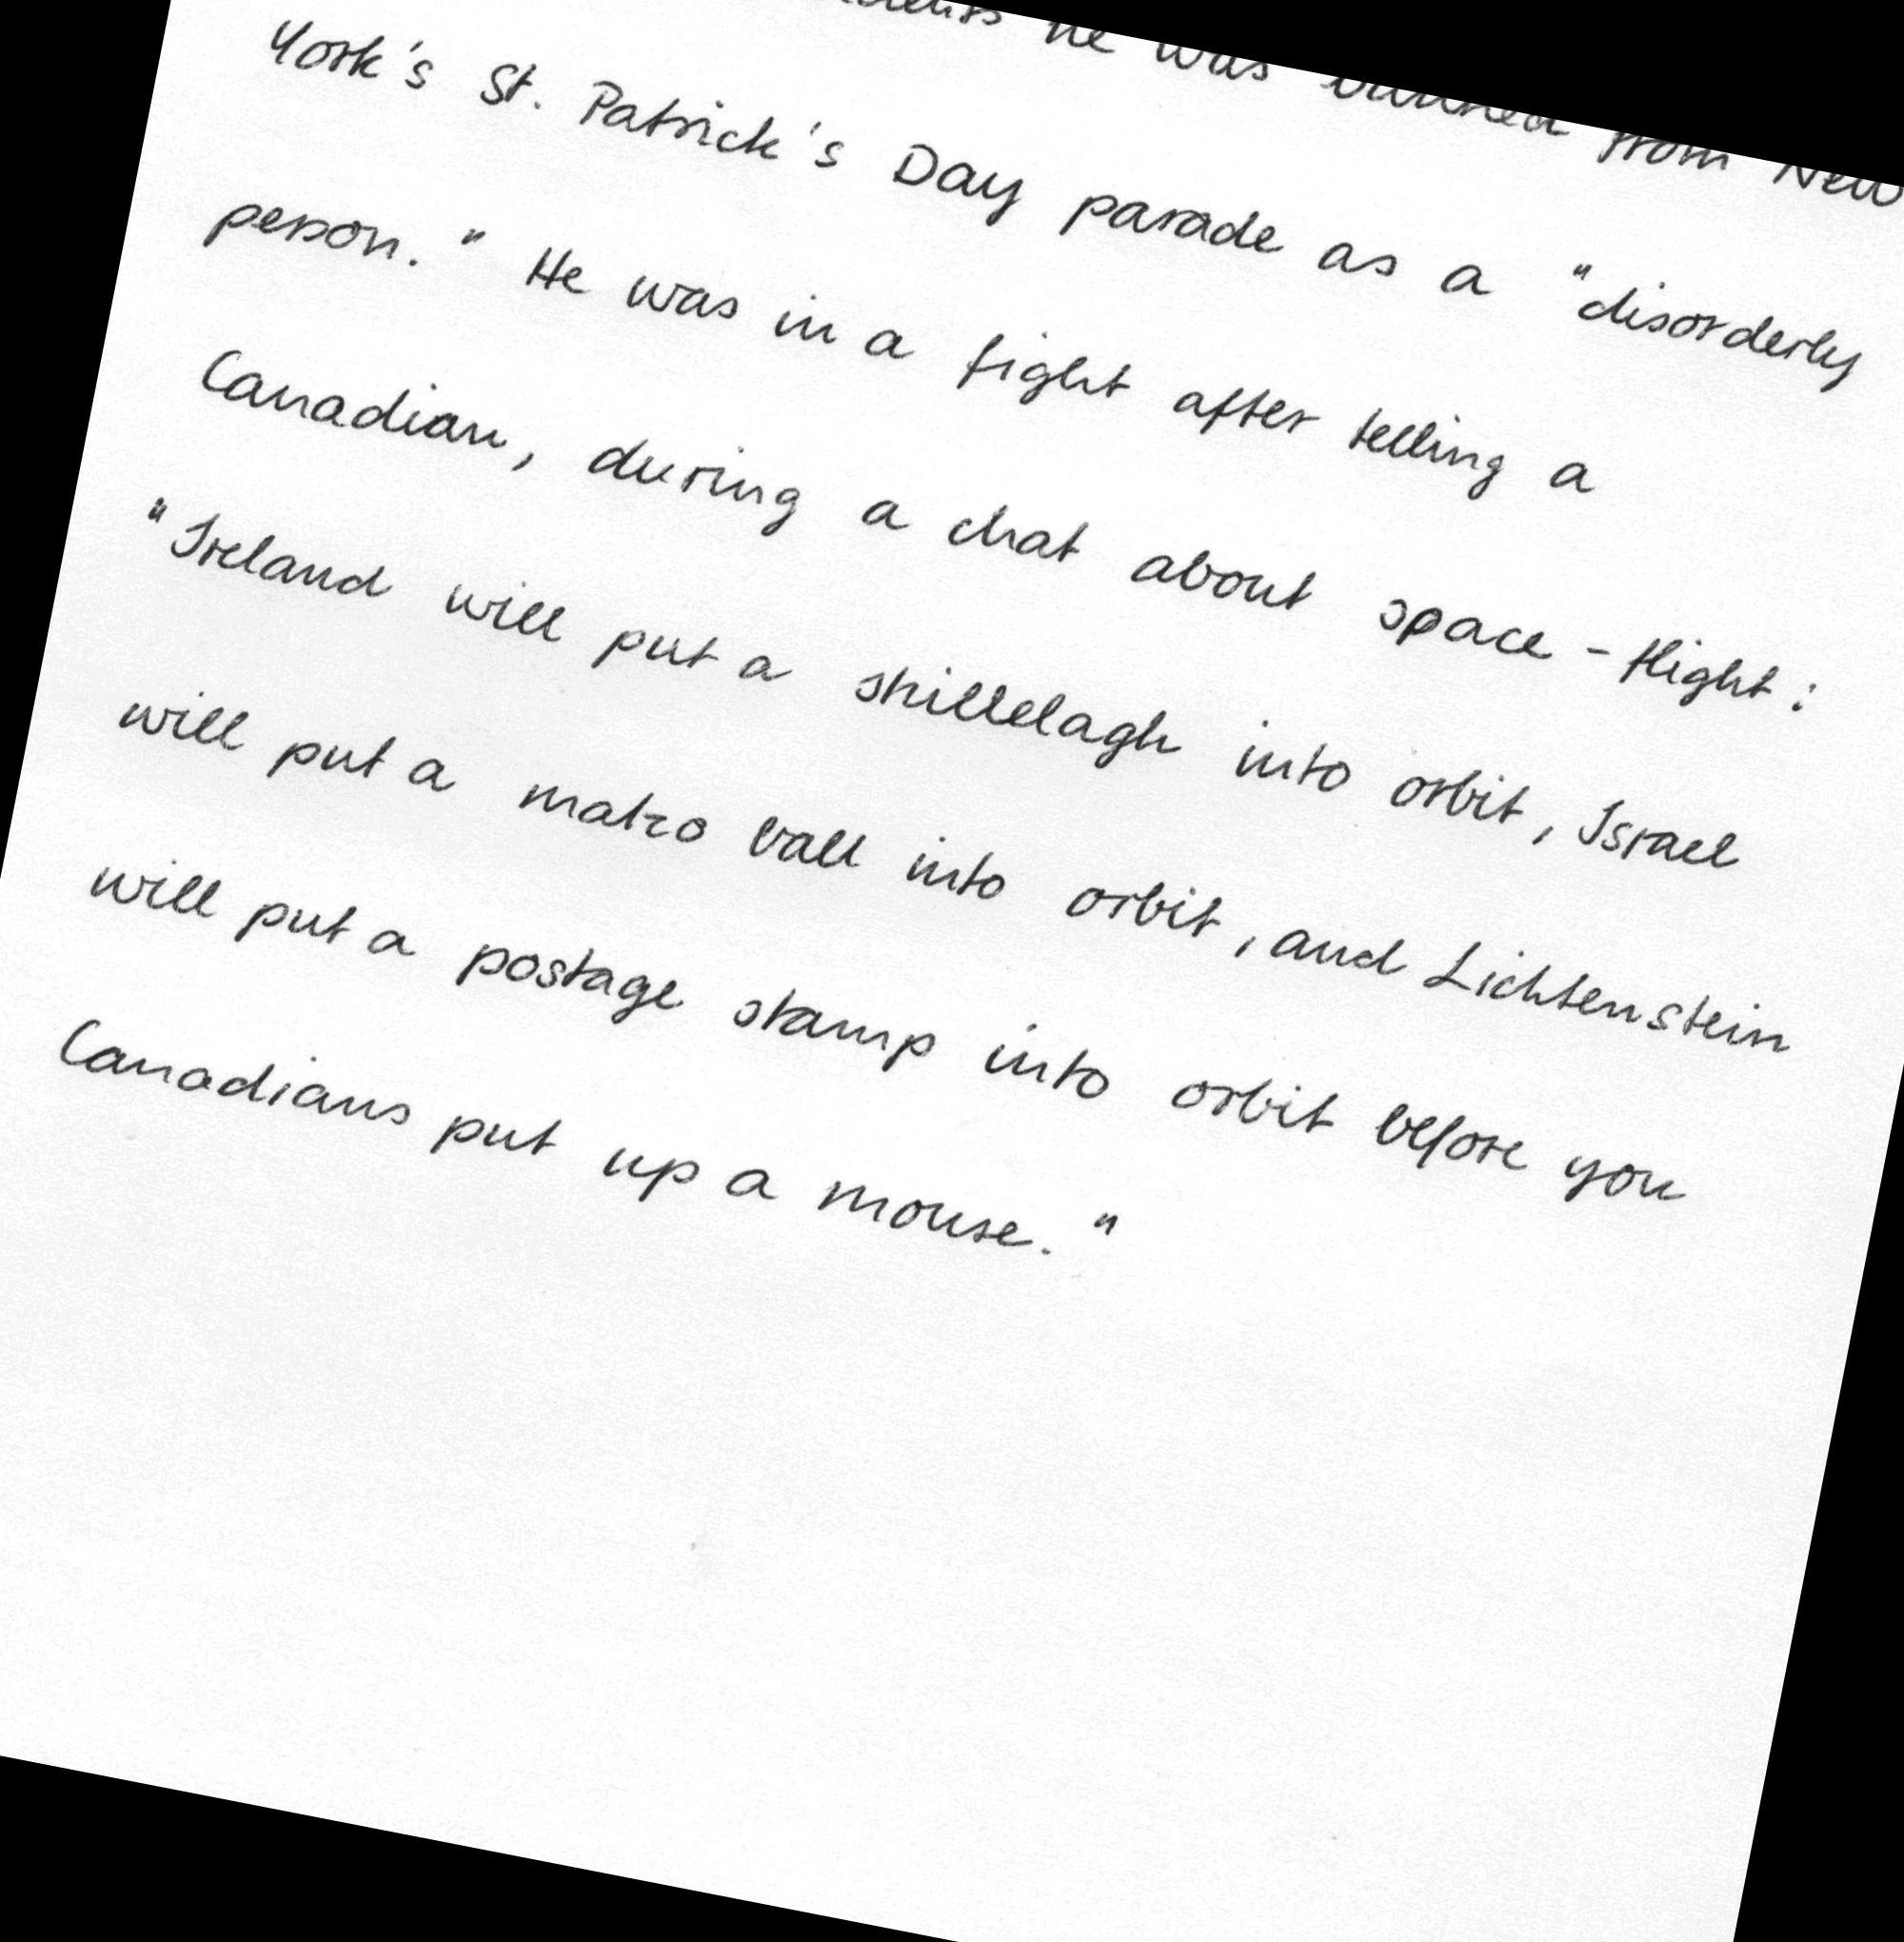 he was banned from New
York's St. Patrick's Day parade as a "disorderly
person." He was in a fight after telling a
Canadian, during a chat about space-flight:
"Ireland will put a shillelagh into orbit, Israel
will put a matzo ball into orbit, and Lichtenstein
will put a postage stamp into orbit before you
Canadians put up a mouse."